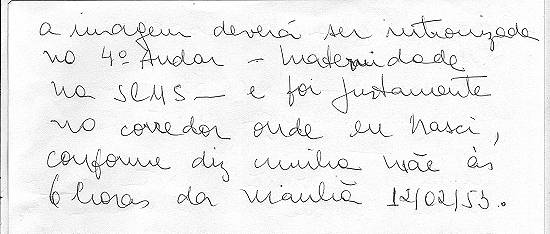 a imagem deverá ser entronizada
no 4º Andar - Maternidade
na SCMS - e foi justamente
no corredor onde eu nasci,
conforme diz minha mãe às
6 horas da manhã 12/02/53.